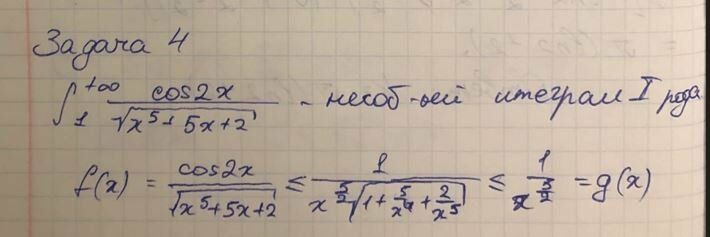 Задача 4
∫₁^{+∞} cos2x / √(x⁵ + 5x + 2) - несоб-ый итеграл I рода
f(x) = cos2x / √(x⁵ + 5x + 2) ≤ 1 / (x^{5/2} √(1 + 5/x⁴ + 2/x⁵)) ≤ 1 / x^{5/2} = g(x)